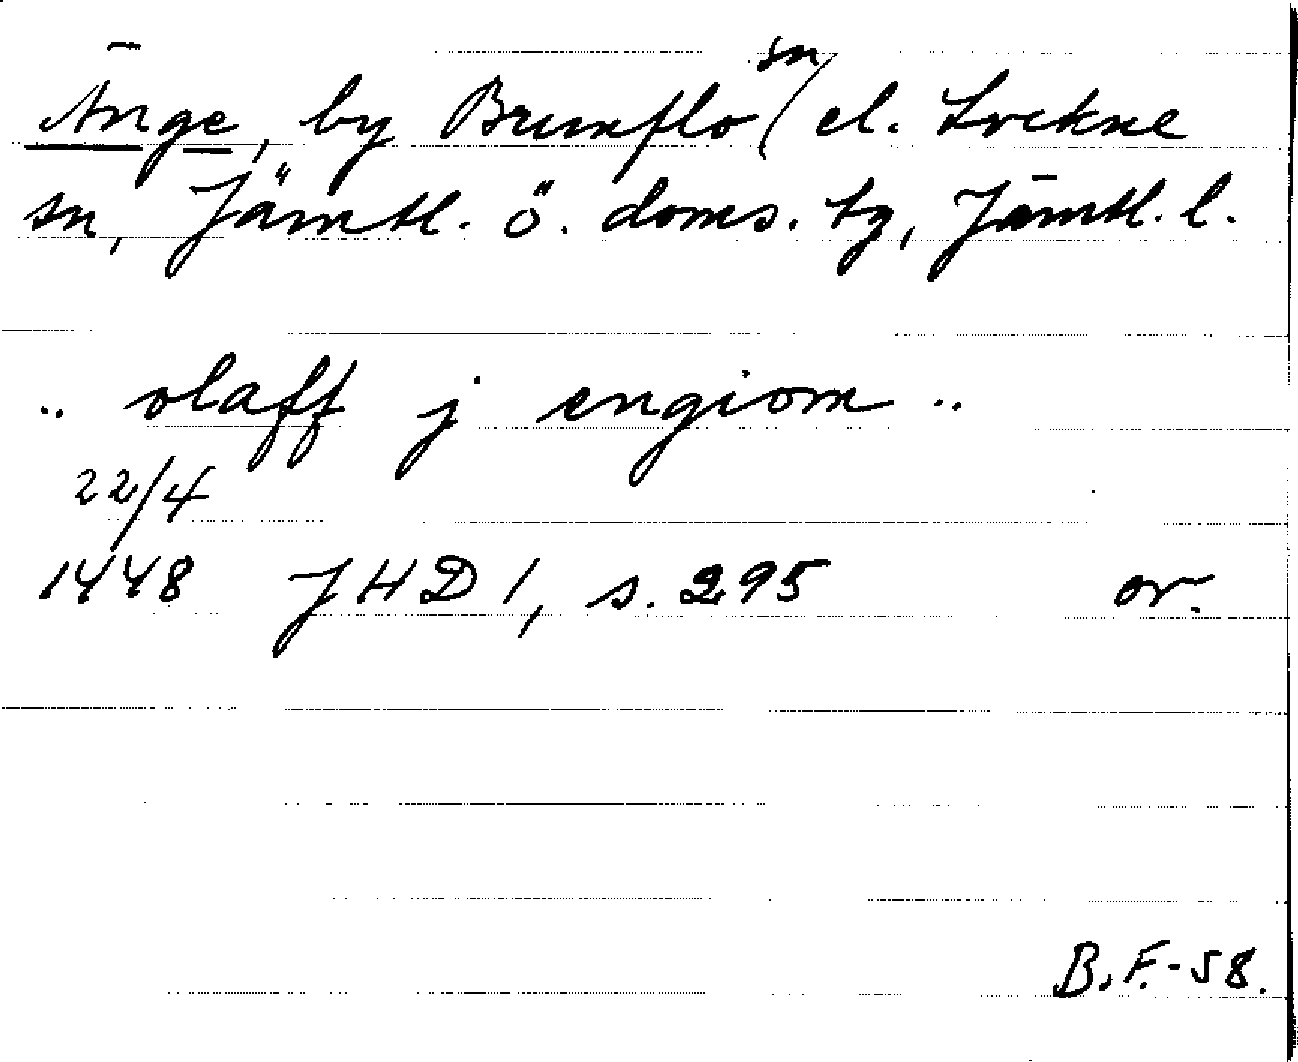 Änge, by Brunflo sn/ el. Lockne
sn, Jämtl. ö. doms. tg, Jämtl. l.
.. olaff j engiom ..
22/4
1448 JHD 1, s. 295 or.
B.F.-58.